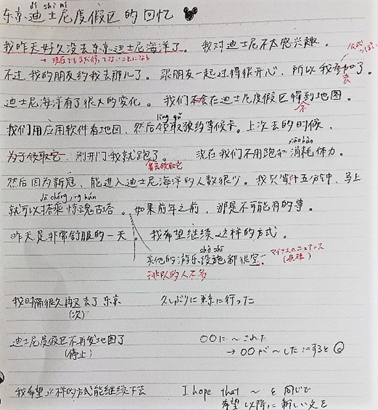 dí shì ní
东京迪士尼度假区的回忆
我昨天好久没去东京迪士尼海洋了。 我对迪士尼不太感兴趣。
不过 我的朋友约我去那儿了。 跟朋友一起过得很开心，所以我
迪士尼海洋有了很大的变化。 我们不会在迪士尼度假区得到地图。
我们用应用软件看地图，然后领取预约等候卡。上次去的时候，
为了领取它 刚开门我就跑了。 现在我们不用跑和消耗体力。
然后因为新冠，能进入迪士尼海洋的人数很少。我只等 五分钟，马上
就可以搭乘惊魂古塔。 如果 年之前，那是不可能有的事。
昨天是非常舒服的一天。 我希望继续这样的方式。
其他的游乐设施都很空
排队的人不多
我时隔很久再去了东京 久しぶりに東京に行った
(次)
迪士尼度假区不再发地图了 〇〇に〜された
(停止) → 〇〇が〜した にする
我希望这样的方式能继续下去 I hope that 〜 と同じで
希望以降に新しい文を